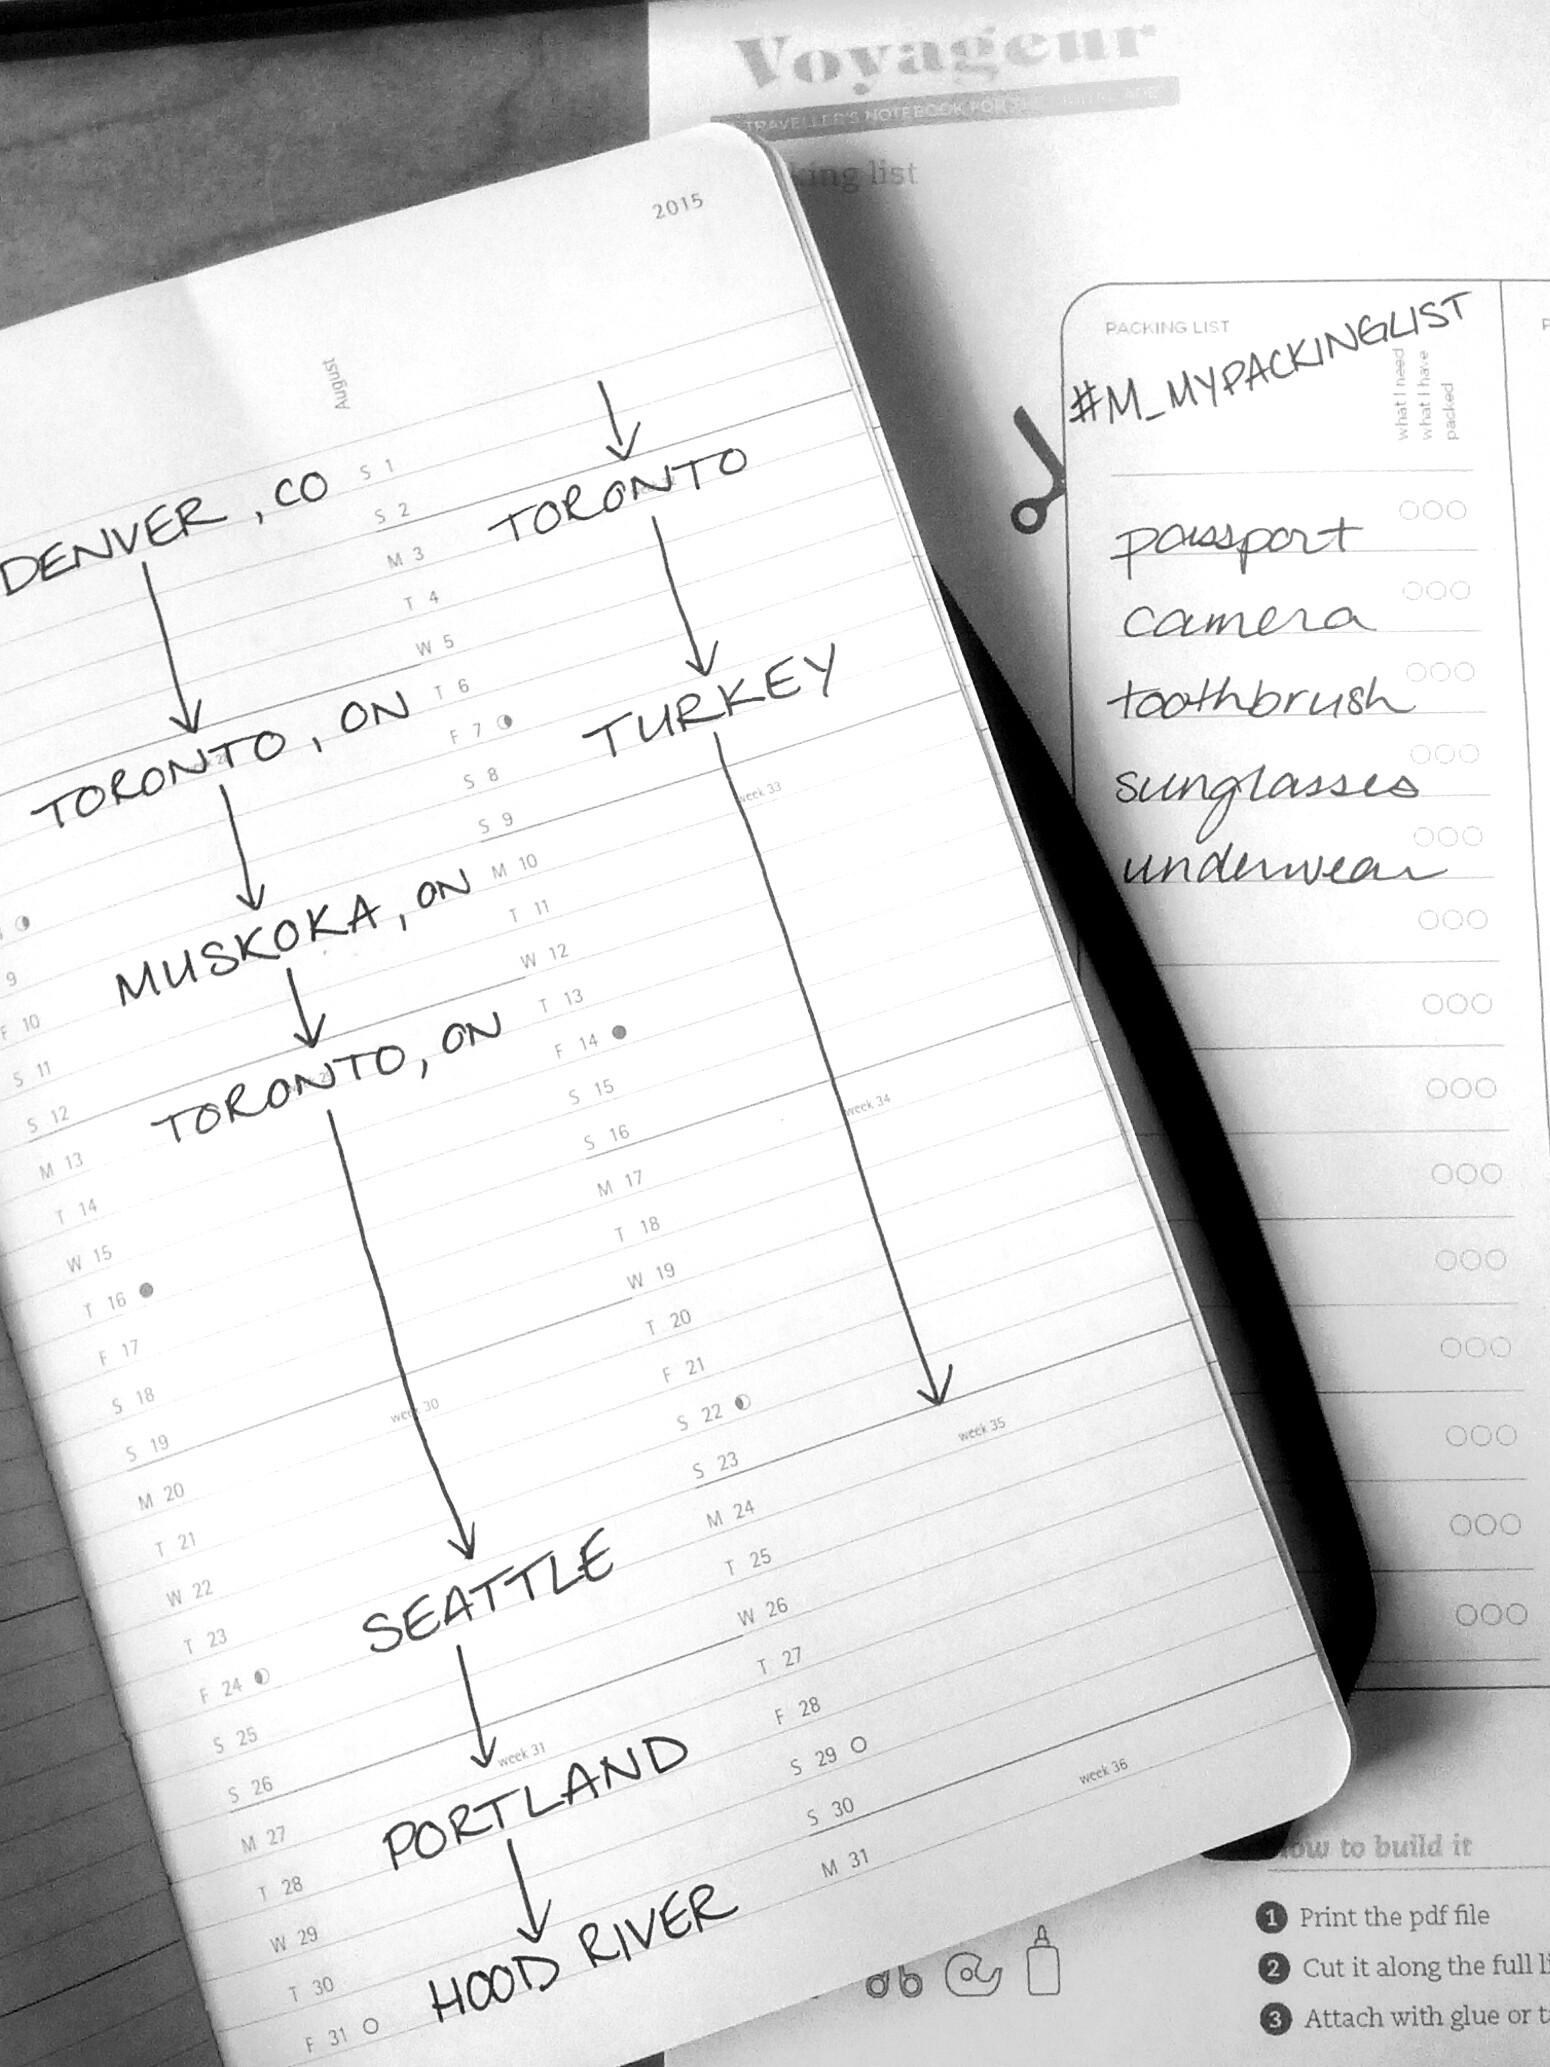 2015
August
DENVER, CO
TORONTO, ON
MUSKOKA, ON
TORONTO, ON
SEATTLE
PORTLAND
HOOD RIVER
9
F 10
S 11
S 12
M 13
T 14
W 15
T 16
F 17
S 18
S 19
week 30
M 20
T 21
W 22
T 23
F 24
S 25
S 26
week 31
M 27
T 28
W 29
T 30
F 31
TORONTO
TURKEY
S 1
S 2
M 3
T 4
W 5
T 6
F 7
S 8
S 9
week 33
M 10
T 11
W 12
T 13
F 14
S 15
S 16
week 34
M 17
T 18
W 19
T 20
F 21
S 22
S 23
week 35
M 24
T 25
W 26
T 27
F 28
S 29
S 30
week 36
M 31
Voyageur
TRAVELLER'S NOTEBOOK FOR THE DIGITAL AGE
list
PACKING LIST
#M_MYPACKINGLIST
what I need
what I have
packed
passport
camera
toothbrush
sunglasses
underwear
to build it
1 Print the pdf file
2 Cut it along the full
3 Attach with glue or